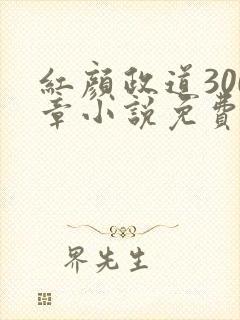 紅顏政道300
章小說免費
界先生